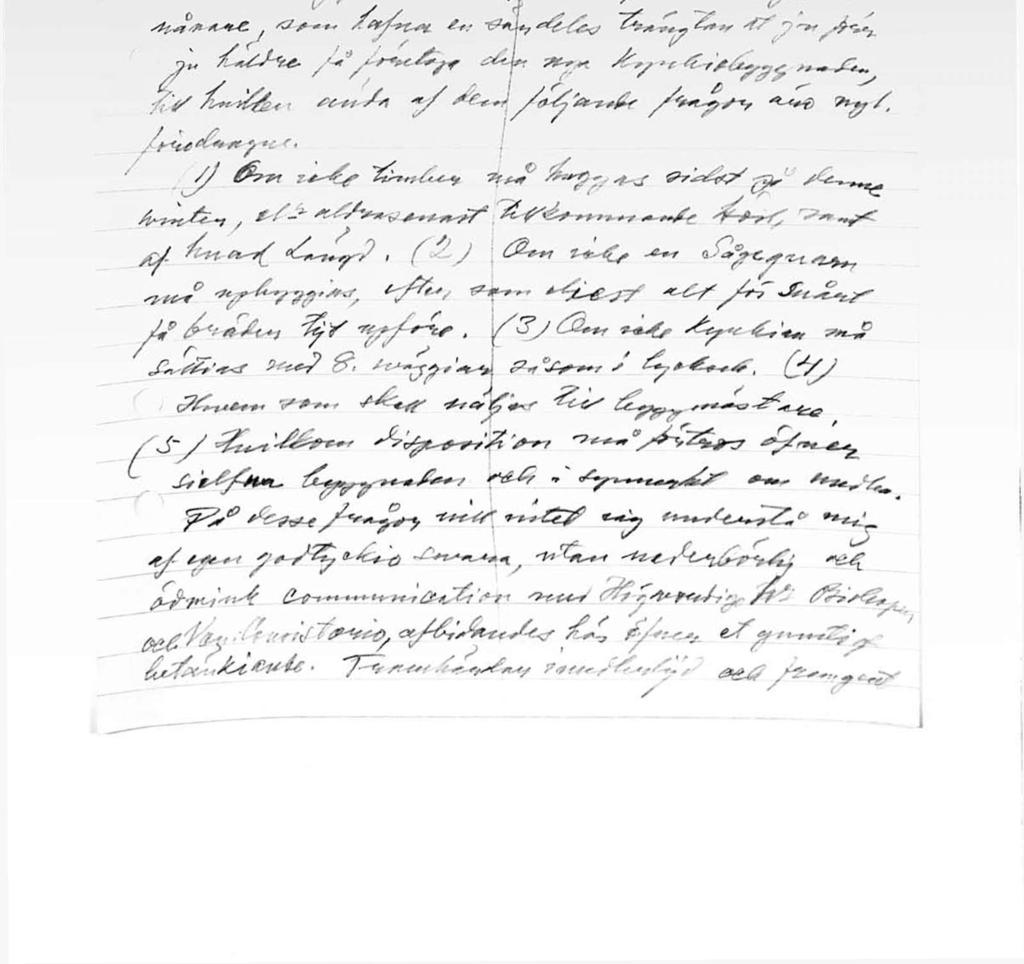 nårane, som hafua en såndeles trängtan at ju förr
ju häldre få företaga den nya Kyrkiobyggnaden,
till huilken ända af dem följande frågor äro nyl.
förodragne.
(1) Om icke timber må huggas sidst på denne
winter, el:r aldrasenast tillkommande höst, samt
af huad Längd. (2) Om icke en Sågequarn
må upbyggias, efter som eliest alt för Suårt
få bräder tijt upföre. (3) Om icke Kyrkian må
sättias med 8. wäggiar såsom i lyckseh. (4)
Huem som skall wäljas till byggmästare,
(5) Huilkom disposition må förtros öfuer
sielfua byggnaden och i synnerhet om medlen.
På desse frågor will intet jag understå mig
af egen godtyckio suara, utan wederbörlig och
ödmiuk communication med Högwördige Hr Biskopen,
och Ven. Consistorio, afbidandes här öfuer et gunstigt
betänkiande. Framhärdar imedlertijd och framgent